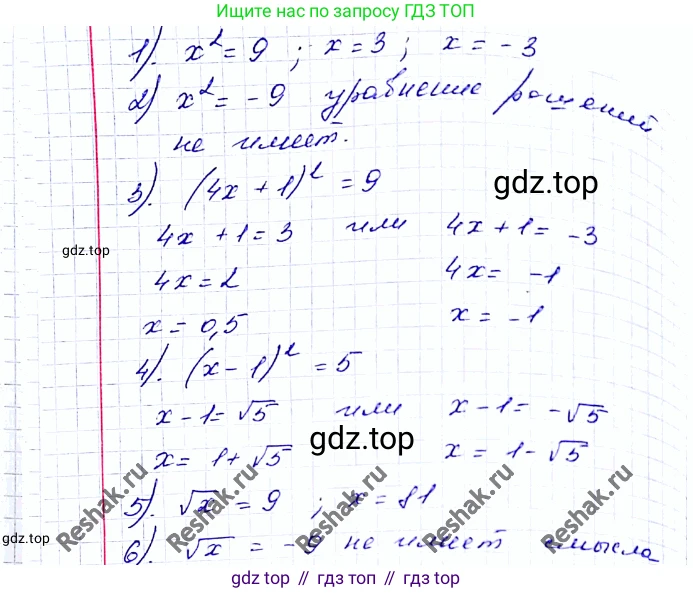 Ищите нас по запросу ГДЗ ТОП
1). x² = 9 ; x = 3 ; x = -3
2) x² = -9 уравнение решений
не имеет.
3). (4x + 1)² = 9
gdz.top
4x + 1 = 3 или 4x + 1 = -3
gdz.top
4x = 2 4x = -1
x = 0,5 x = -1
4). (x - 1)² = 5
x - 1 = √5 или x - 1 = -√5
gdz.top
x = 1 + √5 x = 1 - √5
5). √x = 9 ; x = 81
Reshak.ru Reshak.ru Reshak.ru Reshak.ru
gdz.top
6). √x = -9 не имеет смысла
gdz.top // гдз топ // gdz.top // гдз топ